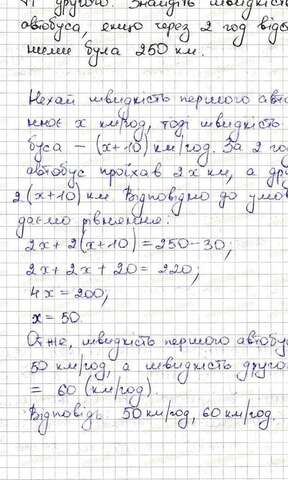 другого. Знайдіть швидкіст
автобуса, якщо через 2 год відс
ними була 250 км.
Нехай швидкість першого авто
нює x км/год, тоді швидкість
буса – (x+10) км/год. За 2 го
автобус проїхав 2x км, а дру
2(x+10) км. Відповідно до умов
даємо рівняння:
2x + 2(x+10) = 250-30;
2x + 2x + 20 = 220;
4x = 200;
x = 50.
Отже, швидкість першого автобус
50 км/год, а швидкість друго
= 60 (км/год).
Відповідь. 50 км/год, 60 км/год.